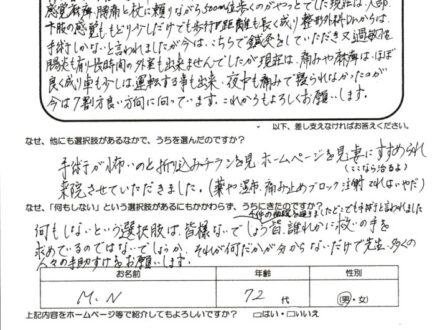 感覚麻痺、腰痛と杖に頼りながら500m位歩くのがやっとでした現在は、人命
下肢の感覚ももどり少しだけでも歩行距離も長く成り整形外科Drからは、
手術しかないと言われましたが今は、こちらで鍼灸をしていただき又過敏性
腸炎も有り長時間の外室も出来ませんでしたが現在は、痛みや麻痺はほぼ
良く成り車も少しは、運転する事も出来、夜中も痛みで寝られなかったのが
今は7割方良い方向に向いています。これからもよろしくお願いします。
以下、差し支えなければお答えください。
なぜ、他にも選択肢があるなかで、うちを選んだのですか？
手術が怖いのと折り込みチラシを見 ホームページを見妻にすすめられ
(ここなら治るよ)
来院させていただきました。(薬や湿布、痛み止めブロック注射でればいやだ)
なぜ、「何もしない」という選択肢があるにもかかわらず、うちにきたのですか？
何もしないという選択肢は、皆様ないでしょう皆、誰れかに救いの手を
求めているのではないでしょうか、それが何だかが分からないだけで先生、多くの
人々の手助けをお願いします。
お名前 年齢 性別
M.N 72 代 男・女
上記内容をホームページ等で紹介してもよろしいですか？ □はい・□いいえ